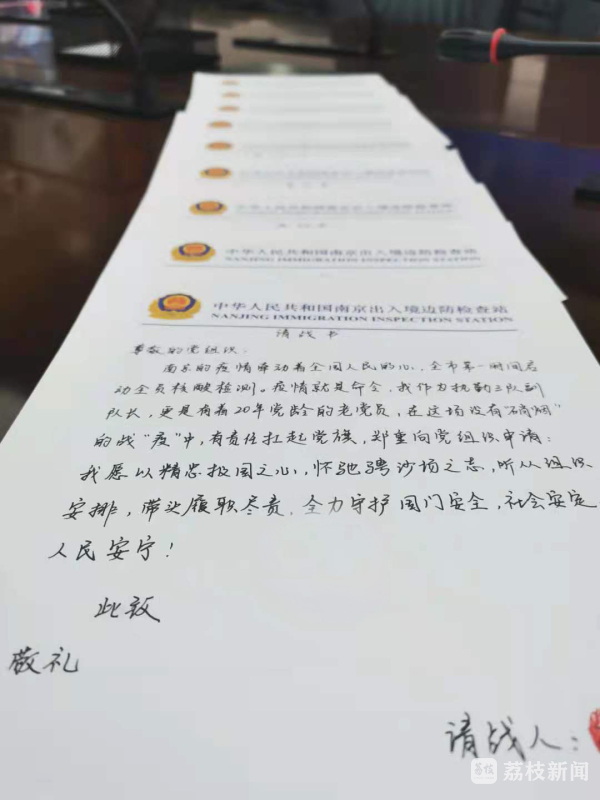 中华人民共和国南京出入境边防检查站
NANJING IMMIGRATION INSPECTION STATION
中华人民共和国南京出入境边防检查站
NANJING IMMIGRATION INSPECTION STATION
请战书
尊敬的党组织:
南京的疫情牵动着全国人民的心,全市第一时间启
动全员核酸检测。疫情就是命令,我作为执勤三队副
队长,更是有着20年党龄的老党员,在这场没有“硝烟”
的战“疫”中,有责任扛起党旗,郑重向党组织申请:
我愿以精忠报国之心,怀驰骋沙场之志,听从组织
安排,带头履职尽责.全力守护国门安全,社会安定
人民安宁!
此致
敬礼
请战人:
荔枝新闻